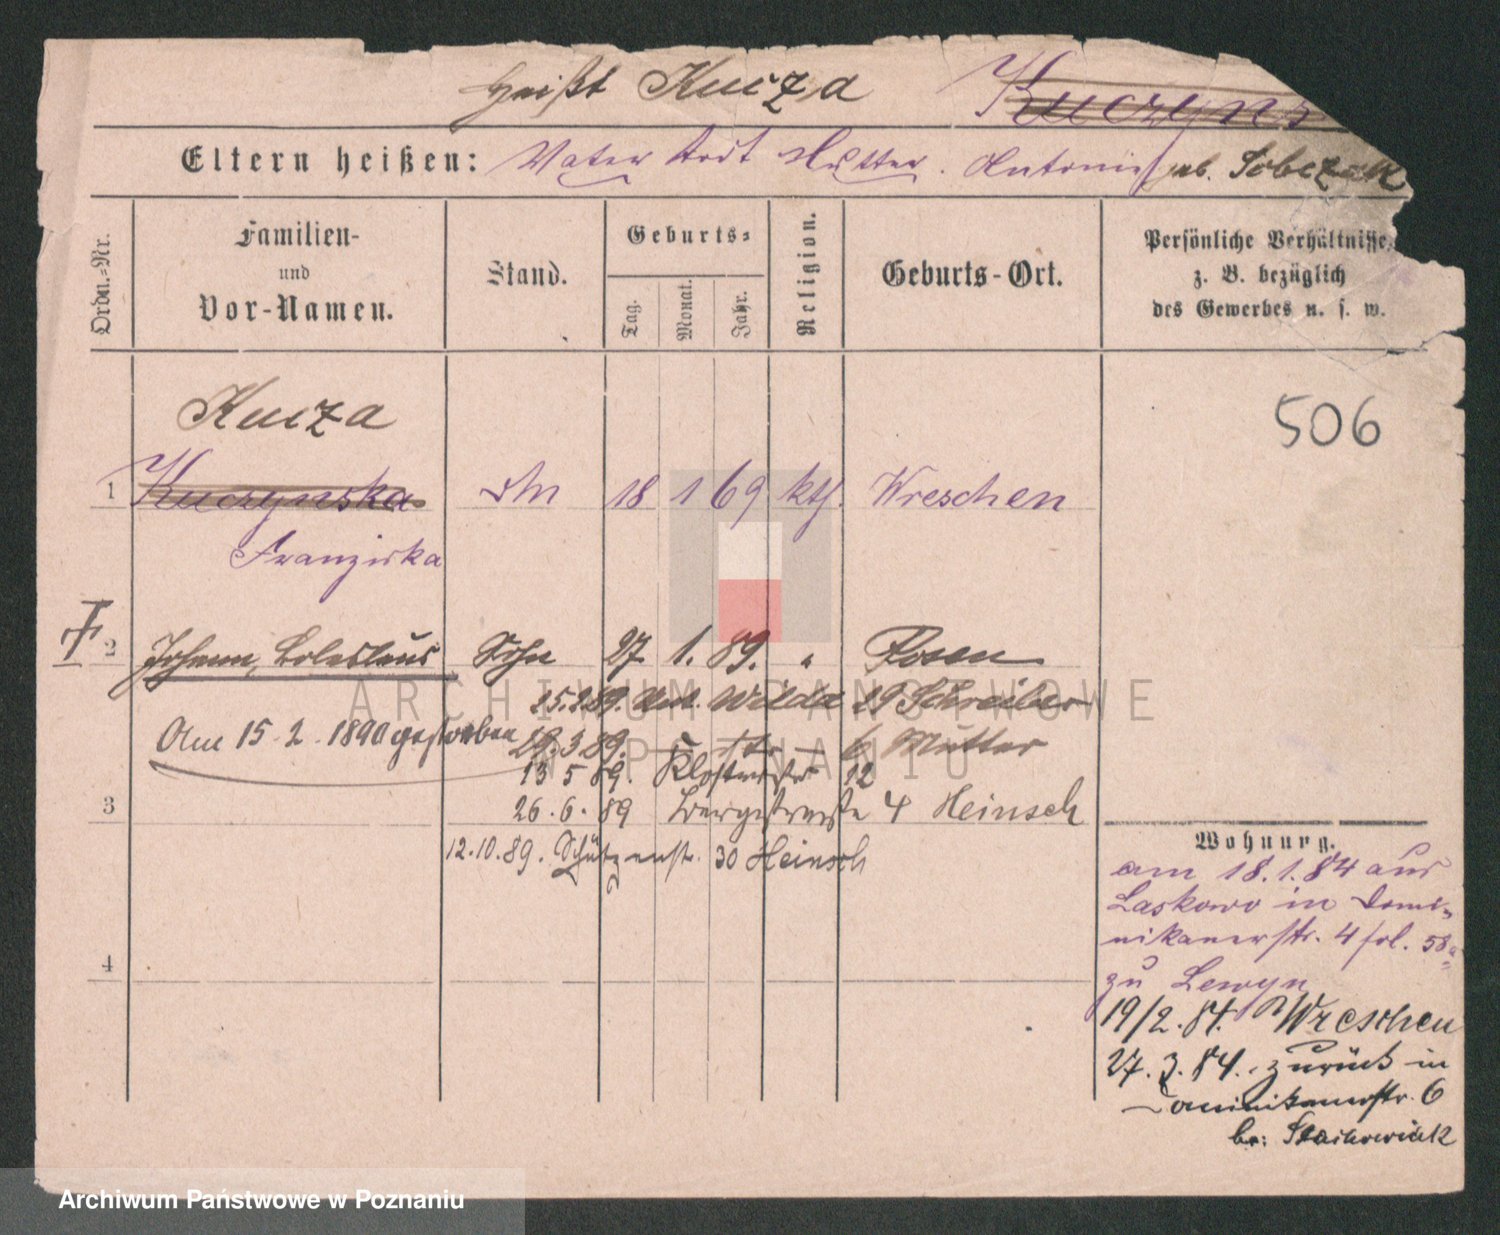 heißt Kucza Kuczyns
Eltern heißen: Vater todt Mutter. Antonie geb. Sobczak
Ordn.-Nr.
Familien-
und
Vor-Namen.
Stand.
Geburts-
Tag.
Monat.
Jahr.
Religion.
Geburts-Ort.
Persönliche Verhältnisse,
z. B. bezüglich
des Gewerbes u. s. w.
506
Kucza
1 Kuczynska 18 1 69 kth. Wreschen
Franziska
2 Johann, Boleslaus Sohn 27 1. 89. " Posen
15.2.89. Unt. Wilda 29 Schreiber
Am 15.2.1890 gestorben
29.3.89. — " — str — 6 Mutter
13 5 89. Klosterstr 12
3 26.6.89 Bergstrasse 4 Heinsch
12.10.89. Schützenstr. 30 Heinsch
4
Wohnung.
am 18.1.84 aus
Laskowo in Domi-
nikanerstr. 4 fol. 58a
zu Lewyn
19/2.84. Wreschen
27.3.84. zurück in
Dominikanerstr. 6
b.: Stachowiak
ARCHIWUM PAŃSTWOWE
W POZNANIU
Archiwum Państwowe w Poznaniu